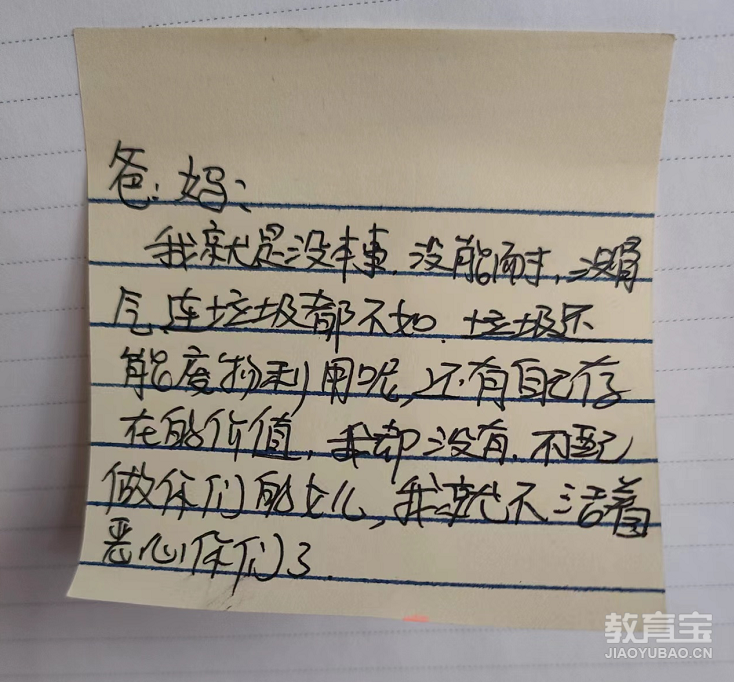 爸:妈:
我就是没本事,没能耐,没骨
气,连垃圾都不如.垃圾还
能废物利用呢,还有自己存
在的价值,我却没有.不配
做你们的女儿,我就不活着
恶心你们了.
教育宝
JIAOYUBAO.CN